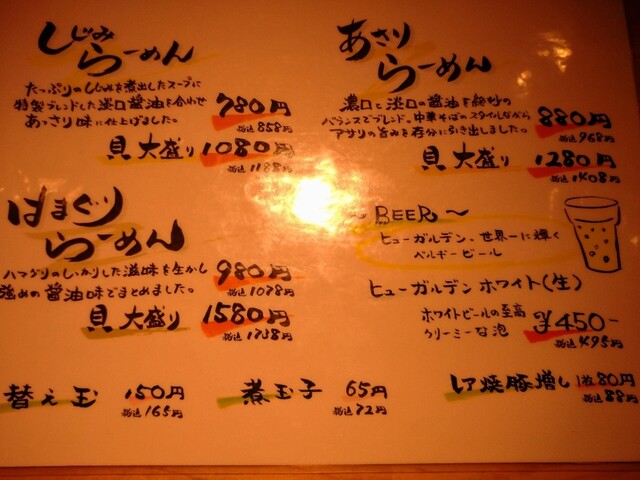 しじみ
らーめん
たっぷりのしじみを煮出したスープに
特製ブレンドした淡口醤油を合わせ
あっさり味に仕上げました。
780円
税込858円
貝大盛り1080円
税込1188円
あさり
らーめん
濃口と淡口の醤油を絶妙の
バランスでブレンド。中華そばのスタイルながら
アサリの旨みを存分に引き出しました。
880円
税込968円
貝大盛り1280円
税込1408円
はまぐり
らーめん
ハマグリのしっかりした滋味を生かし
強めの醤油味でまとめました。
980円
税込1078円
貝大盛り1580円
税込1738円
～BEER～
ヒューガルデン、世界一に輝く
ベルギービール
ヒューガルデンホワイト(生)
ホワイトビールの至高
クリーミーな泡
¥450-
税込495円
替え玉 150円
税込165円
煮玉子 65円
税込72円
レア焼豚増し1枚80円
税込88円